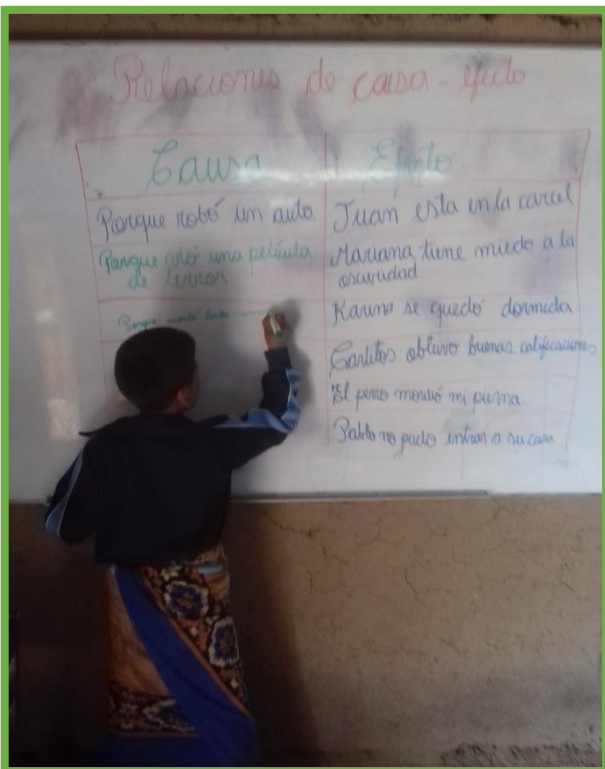 Relaciones de causa - efecto
Causa
Efecto
Porque robó un auto.
Juan esta en la carcel
Porque vió una película
de terror
Mariana tiene miedo a la
oscuridad
Porque
Karina se quedó dormida
Carlitos obtuvo buenas calificaciones
El perro mordió mi pierna
Pablo no pudo entrar a su casa